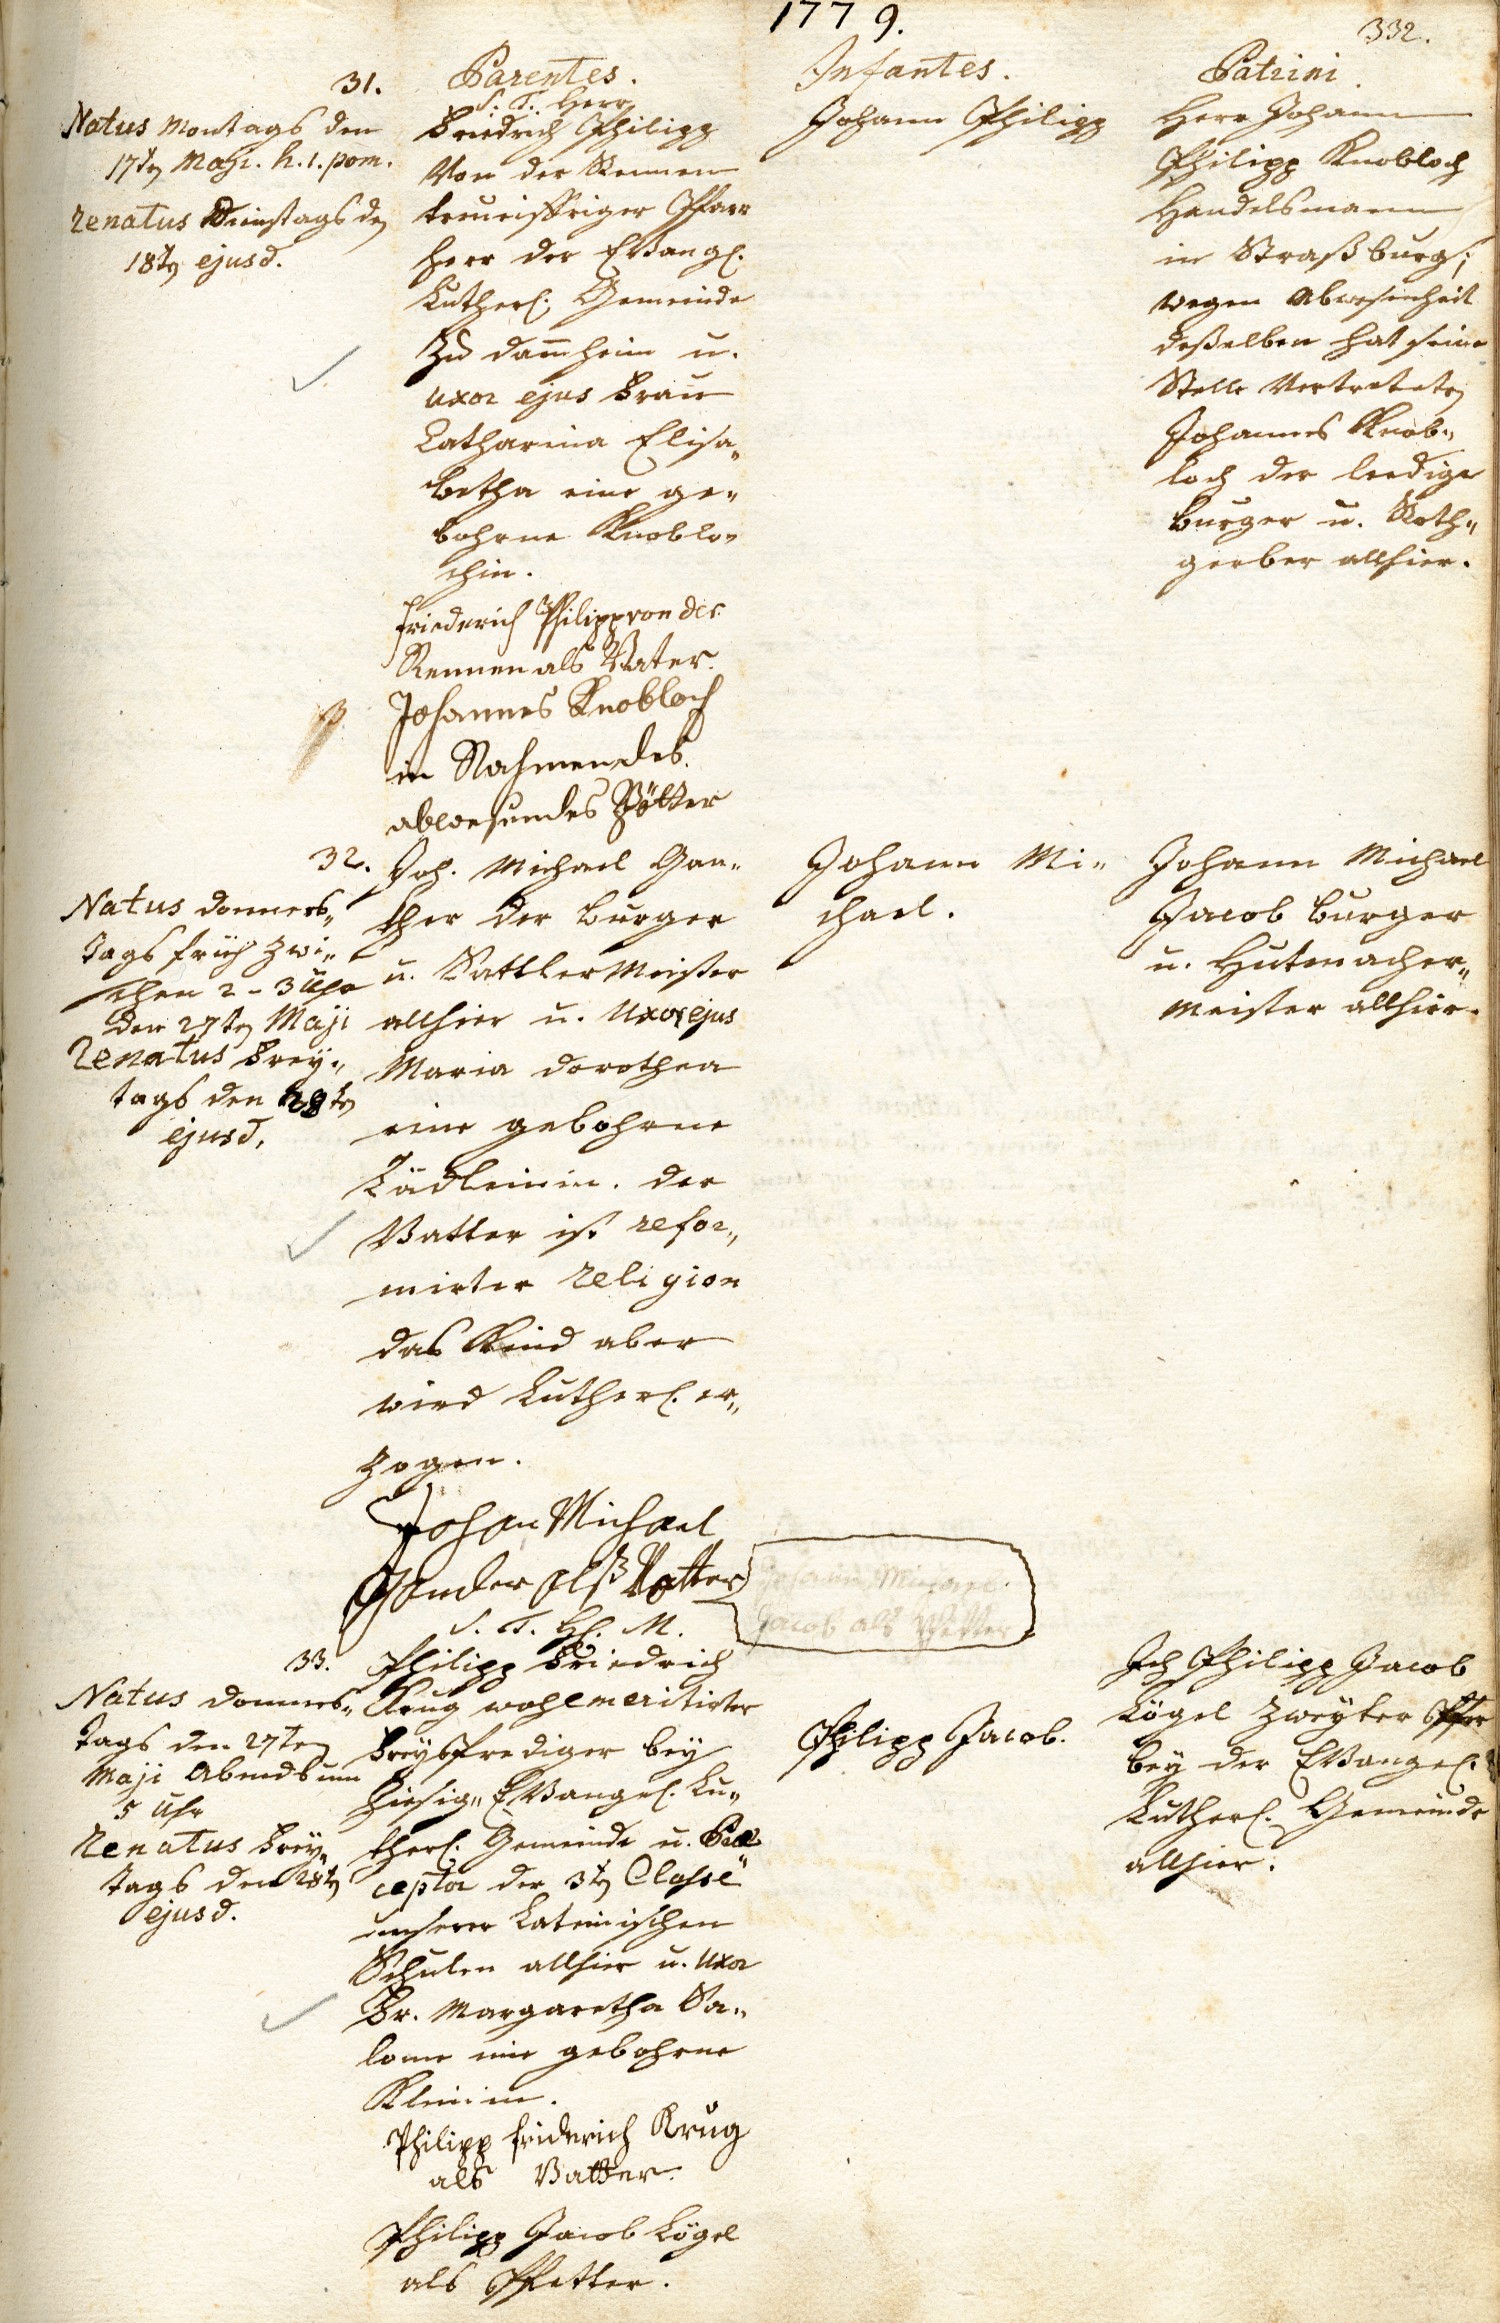 1779.
332.
Parentes.
Infantes.
Patrini
31.
Natus Montags den
17ten Maji. h. 1. pom.
renatus Dinstags den
18ten ejusd.
S. T. Herr
Friedrich Philipp
Von der Kennen
treueiffriger Pfarr
herr der Evangl.
Lutherl. Gemeinde
zu Dam̄heim u.
uxor ejus Frau
Catharina Elisa„
betha eine ge„
bohrne Knoblo„
chin.
Friederich Philipp von der
Kennen als Vater.
Johannes Knobloch
in Nahmen des
abwesendes Pötter
Johann Philipp
Herr Johann
Philipp Knobloch
Handelsmann
in Straßburg;
wegen Abwesenheit
deßelben hat seine
Stelle Vertretten
Johannes Knob„
loch der leedige
burger u. Roth„
gerber allhier.
32.
Natus Donners„
tags früh zwi„
schen 2 - 3 Uhr
den 27ten Maji
Renatus Frey„
tags den 28ten
ejusd.
Joh. Michael Gan„
ther der burger
u. Sattler Meister
allhier u. Uxor ejus
Maria Dorothea
eine gebohrne
Lädleinin. der
Vatter ist refor„
mirter religion
das Kind aber
wird Lutherl. er„
zogen.
Johan Michael
Gander alß Vatter
Johann Michael
Jacob als Pfetter
Johann Mi„
chael.
Johann Michael
Jacob burger
u. Hutmacher„
meister allhier.
33.
Natus Donners„
tags den 27ten
Maji Abends um
5 Uhr
Renatus Frey„
tags den 28ten
ejusd.
S. T. H. M.
Philipp Friedrich
Krug wohlemeritirter
Freyprediger bey
hiesig„ Evangel. Lu„
therl. Gemeinde u. Præ„
ceptor der 3ten Classe
unserer Lateinischen
Schulen allhier u. Uxor
Fr. Margaretha Sa„
lome eine gebohrne
Kleinin.
Philipp Friderich Krug
als Vatter.
Philipp Jacob Lögel
als Pfetter.
Philipp Jacob.
Ich Philipp Jacob
Lögel zweyter Pfar
bey der Evangel.
Lutherl. Gemeinde
allhier.